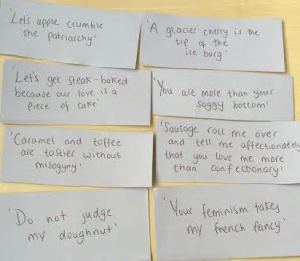 'Let's apple crumble
the patriarchy'
'A glacier cherry is the
tip of the
ice burg'
'Let's get steak-baked
because our love is a
piece of cake'
'You are more than your
soggy bottom'
'Caramel and toffee
are tastier without
misogyny'
'Sausage roll me over
and tell me affectionately
that you love me more
than confectionary'
'Do not judge
my doughnut'
'Your feminism takes
my french fancy'